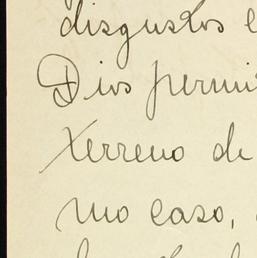 disgustos e
Dios permi
terreno de
mo caso,